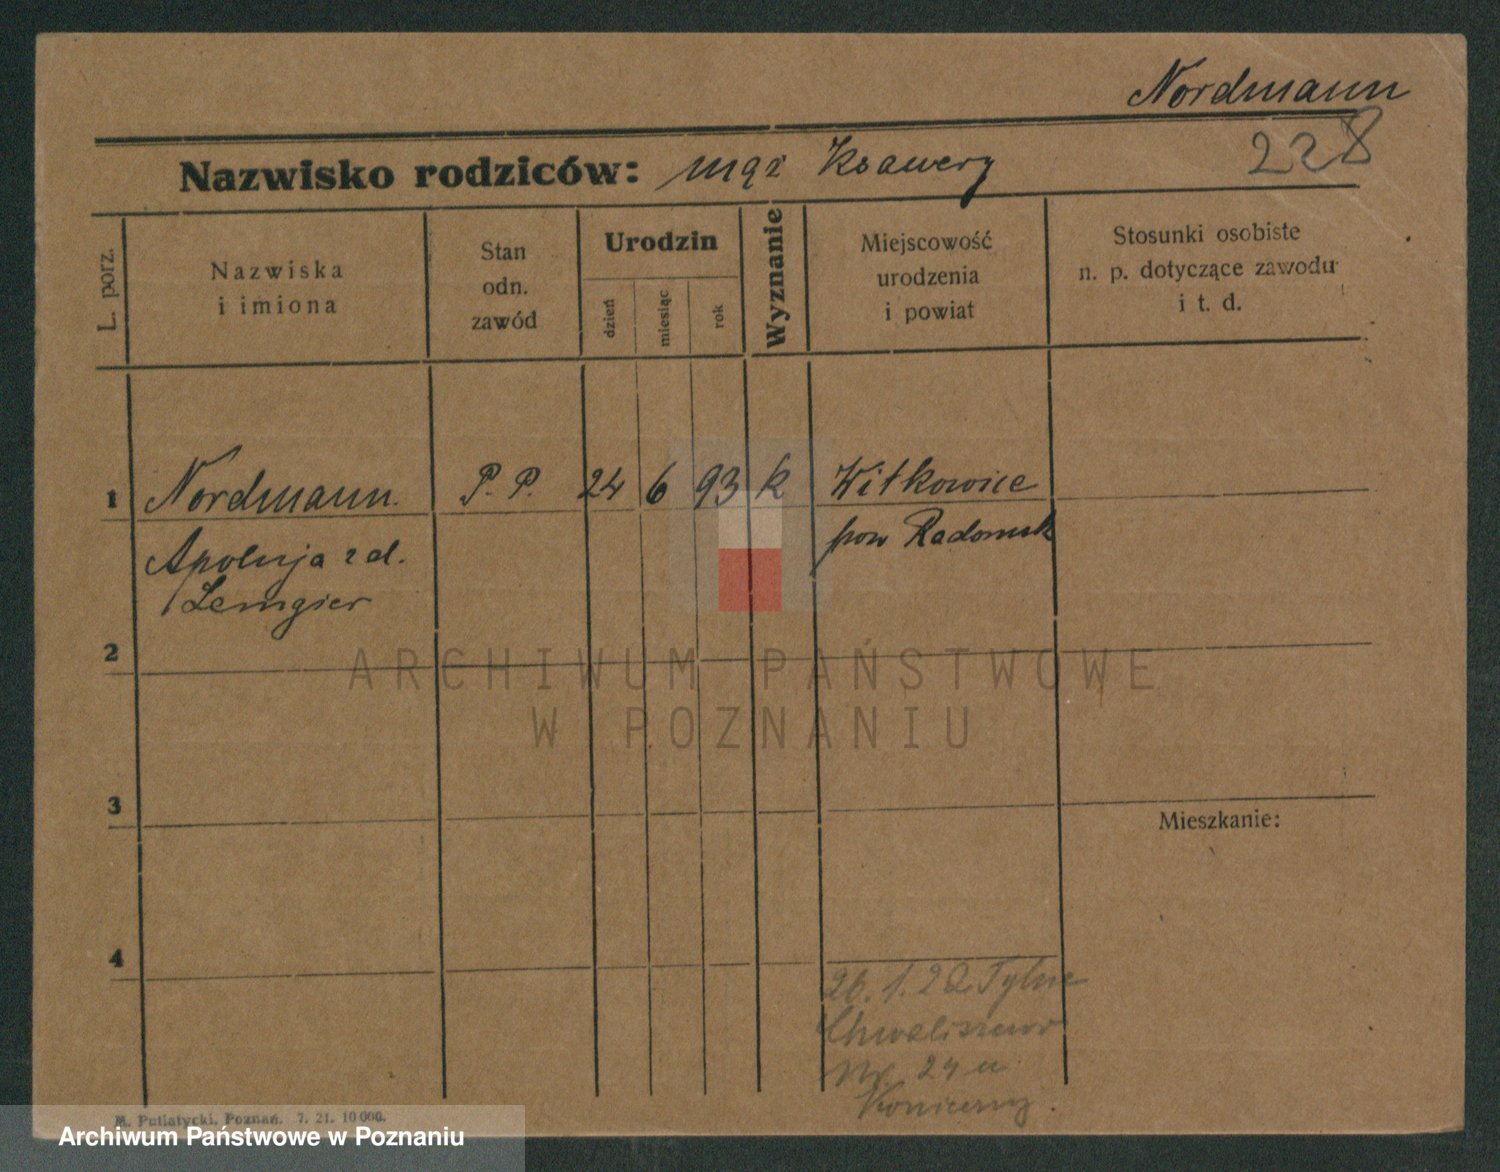 Nordmann
228
Nazwisko rodziców: mąż Ksawery
L. porz.
Nazwiska
i imiona
Stan
odn.
zawód
Urodzin
dzień
miesiąc
rok
Wyznanie
Miejscowość
urodzenia
i powiat
Stosunki osobiste
n. p. dotyczące zawodu
i t. d.
1 Nordmann. P. P. 24 6 93 k Witkowice
pow Radomsk
Apolnja zd.
Lemgier
2
ARCHIWUM PAŃSTWOWE
W POZNANIU
3
Mieszkanie:
4
26. 1. 22 Tylne
Chwaliszewo
Nr. 24 u
M. Putiatycki, Poznań. 7. 21. 10 000.
Archiwum Państwowe w Poznaniu